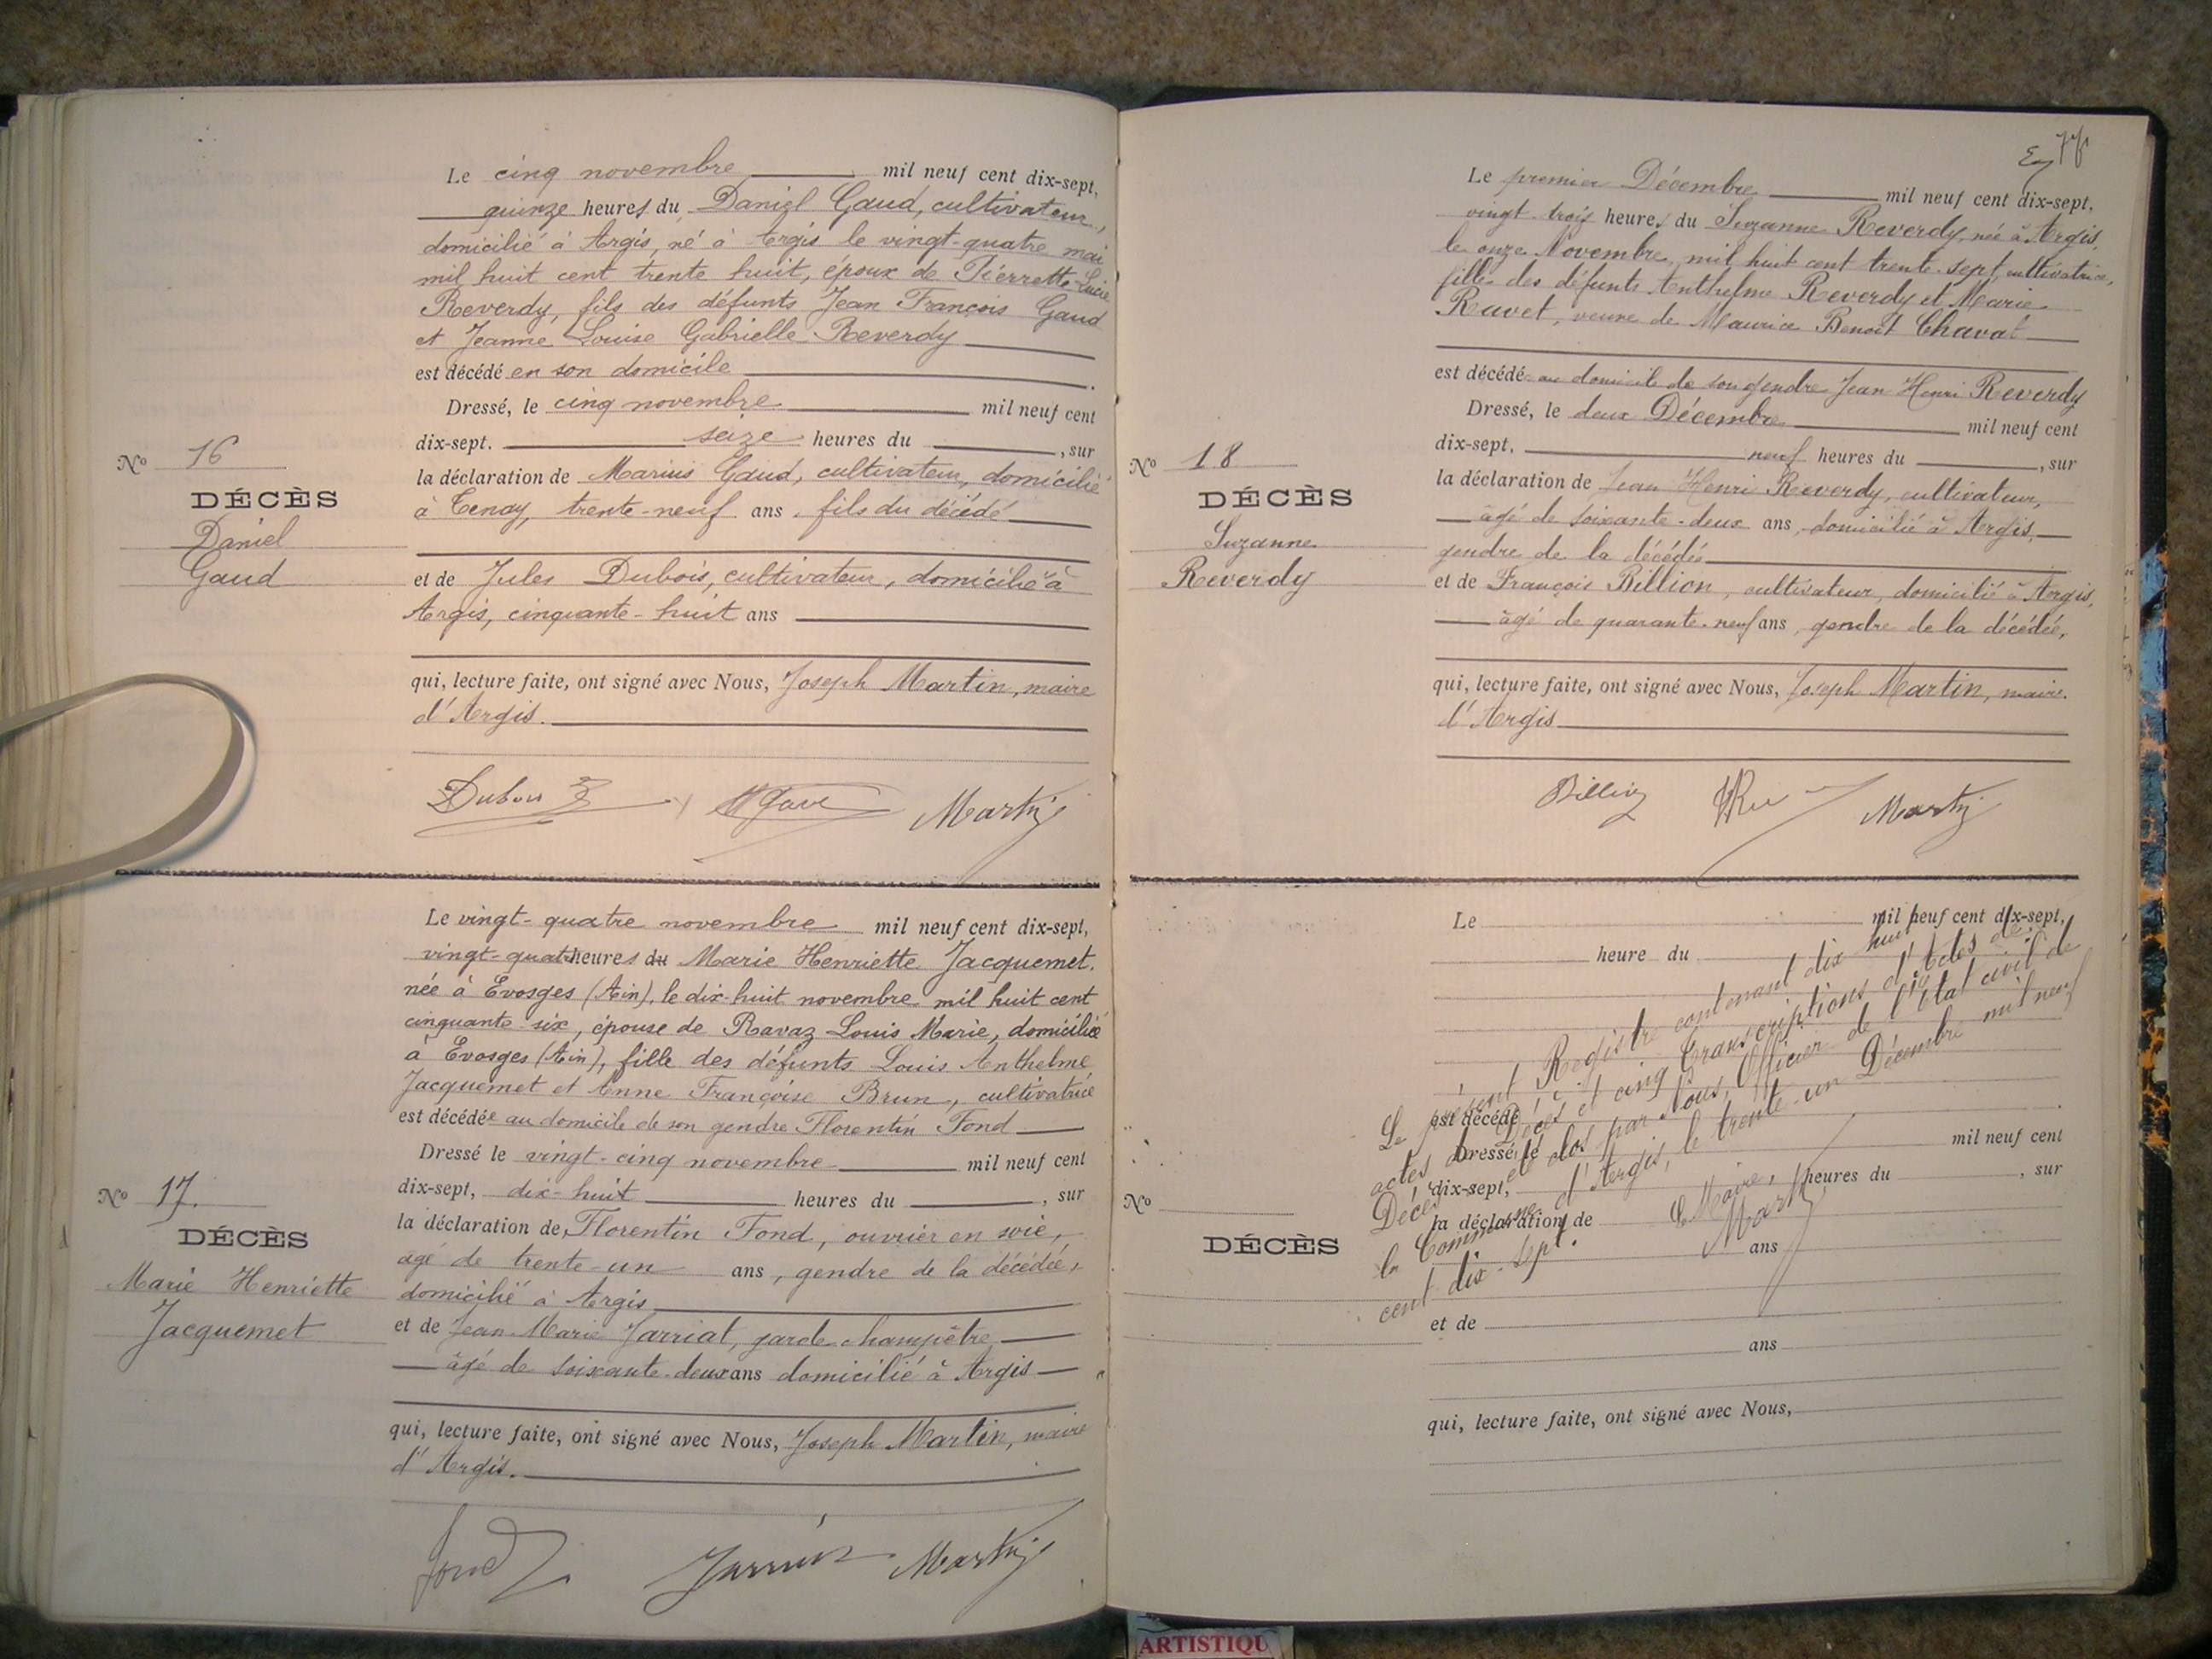 Le cinq novembre mil neuf cent dix-sept,
quinze heures du, Daniel Gaud, cultivateur,
domicilié à Argis, né à Argis le vingt-quatre mai
mil huit cent trente huit, époux de Pierrette-Lucie
Reverdy, fils des défunts Jean François Gaud
et Jeanne Louise Gabrielle Reverdy
est décédé en son domicile
Dressé, le cinq novembre mil neuf cent
dix-sept. seize heures du , sur
la déclaration de Marius Gaud, cultivateur, domicilié
à Tenay, trente-neuf ans, fils du décédé
et de Jules Dubois, cultivateur, domicilié à
Argis, cinquante-huit ans
qui, lecture faite, ont signé avec Nous, Joseph Martin, maire
d'Argis.
No 16
DÉCÈS
Daniel
Gaud
Dubois M Gaud Martin
Le vingt-quatre novembre mil neuf cent dix-sept,
vingt-quatre heures du Marie Henriette Jacquemet,
née à Evosges (Ain), le dix-huit novembre mil huit cent
cinquante-six, épouse de Ravaz Louis Marie, domiciliée
à Evosges (Ain), fille des défunts Louis Anthelme
Jacquemet et Anne Françoise Brun, cultivatrice
est décédée au domicile de son gendre Florentin Fond
Dressé le vingt-cinq novembre mil neuf cent
dix-sept, dix-huit heures du , sur
la déclaration de Florentin Fond, ouvrier en soie,
agé de trente-un ans, gendre de la décédée,
domicilié à Argis
et de Jean-Marie Jarriat, garde champêtre,
âgé de soixante-deux ans domicilié à Argis
qui, lecture faite, ont signé avec Nous, Joseph Martin, maire
d'Argis.
No 17.
DÉCÈS
Marie Henriette
Jacquemet
Fond Jarriat Martin
Le premier Décembre mil neuf cent dix-sept,
vingt-trois heures du Suzanne Reverdy, née à Argis,
le onze Novembre, mil huit cent trente-sept, cultivatrice,
fille des défunts Anthelme Reverdy et Marie
Ravet, veuve de Maurice Benoit Chavat
est décédé au domicile de son gendre Jean Henri Reverdy
Dressé, le deux Décembre mil neuf cent
dix-sept, neuf heures du , sur
la déclaration de Jean Henri Reverdy, cultivateur,
âgé de soixante-deux ans, domicilié à Argis,
gendre de la décédée
et de François Billion, cultivateur, domicilié à Argis,
âgé de quarante-neuf ans, gendre de la décédée,
qui, lecture faite, ont signé avec Nous, Joseph Martin, maire
d'Argis
No 18
DÉCÈS
Suzanne
Reverdy
Billion Martin
Le mil neuf cent dix-sept,
heure du
est décédé
Dressé, le mil neuf cent
dix-sept, heures du , sur
la déclaration de
ans
et de
ans
qui, lecture faite, ont signé avec Nous,
No
DÉCÈS
Le présent Registre contenant dix huit
actes de Décès et cinq Transcriptions d'Actes de
Décès, a été clos par Nous, Officier de l'état civil de
la Commune d'Argis, le trente-un Décembre mil neuf
cent dix-sept.
Le Maire,
Martin
ARTISTIQU